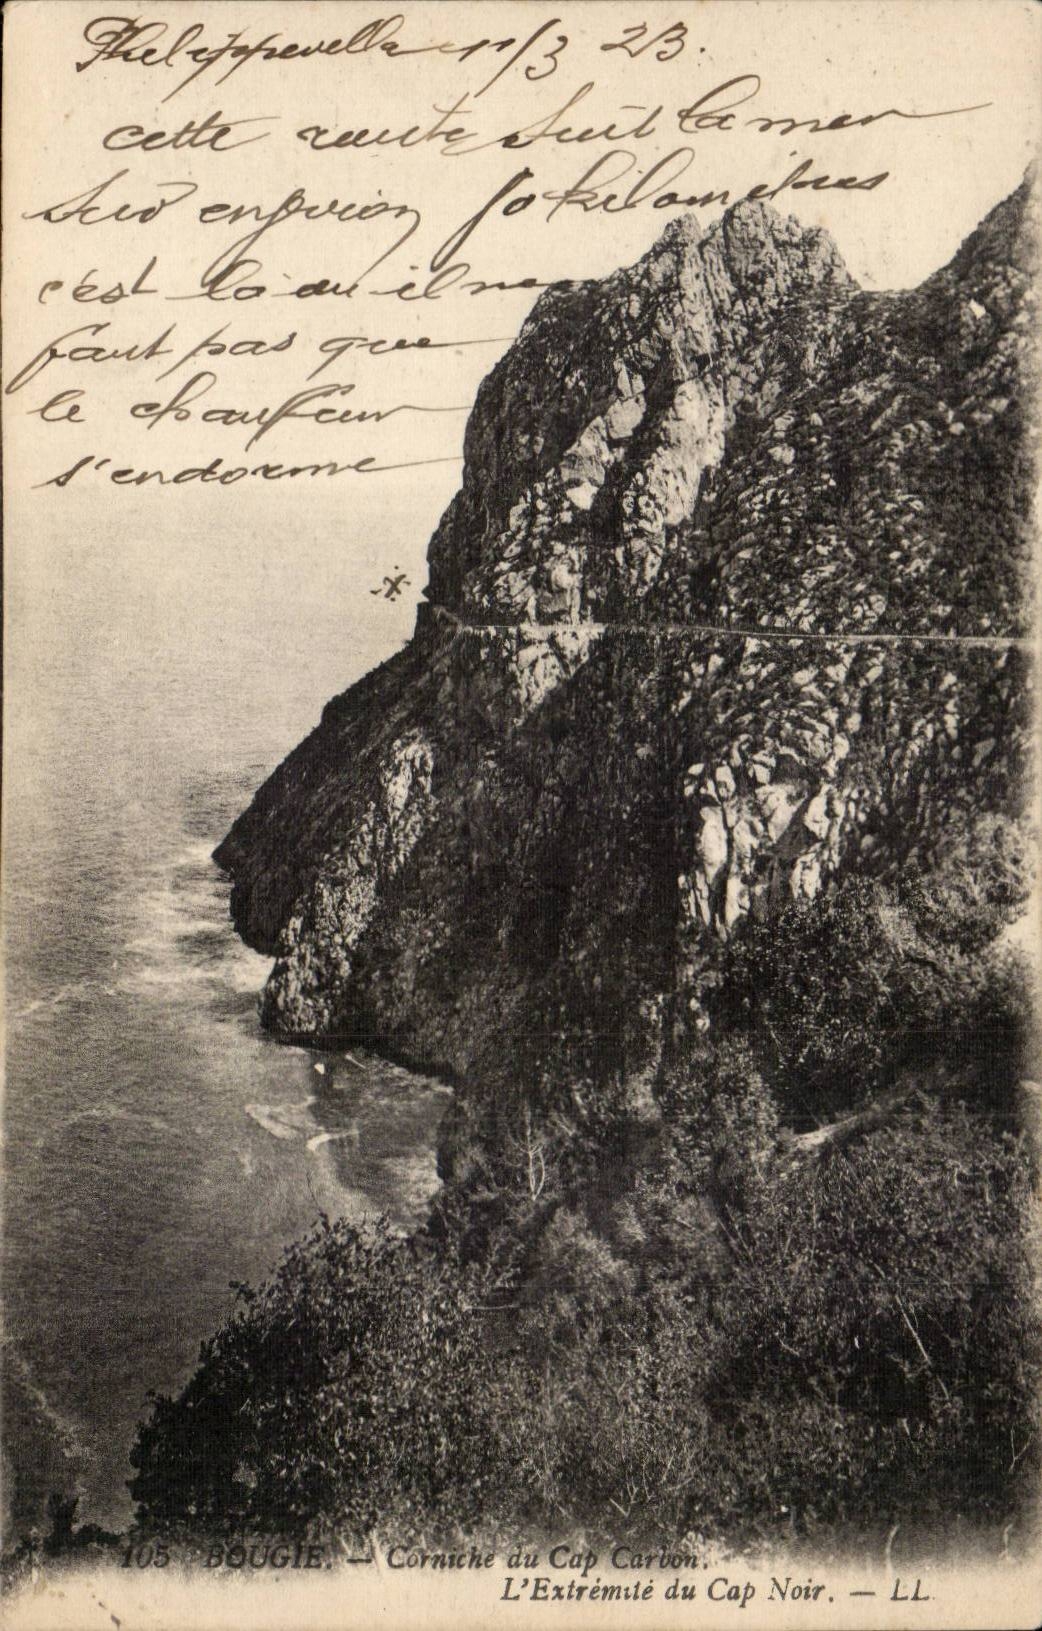 Philippevelle 11/3 23.
cette route suit la mer
sur environ 50 kilomètres
c'est là où il ne
faut pas que
le chauffeur
s'endorme
105 BOUGIE. — Corniche du Cap Carbon.
L'Extrémité du Cap Noir. — LL